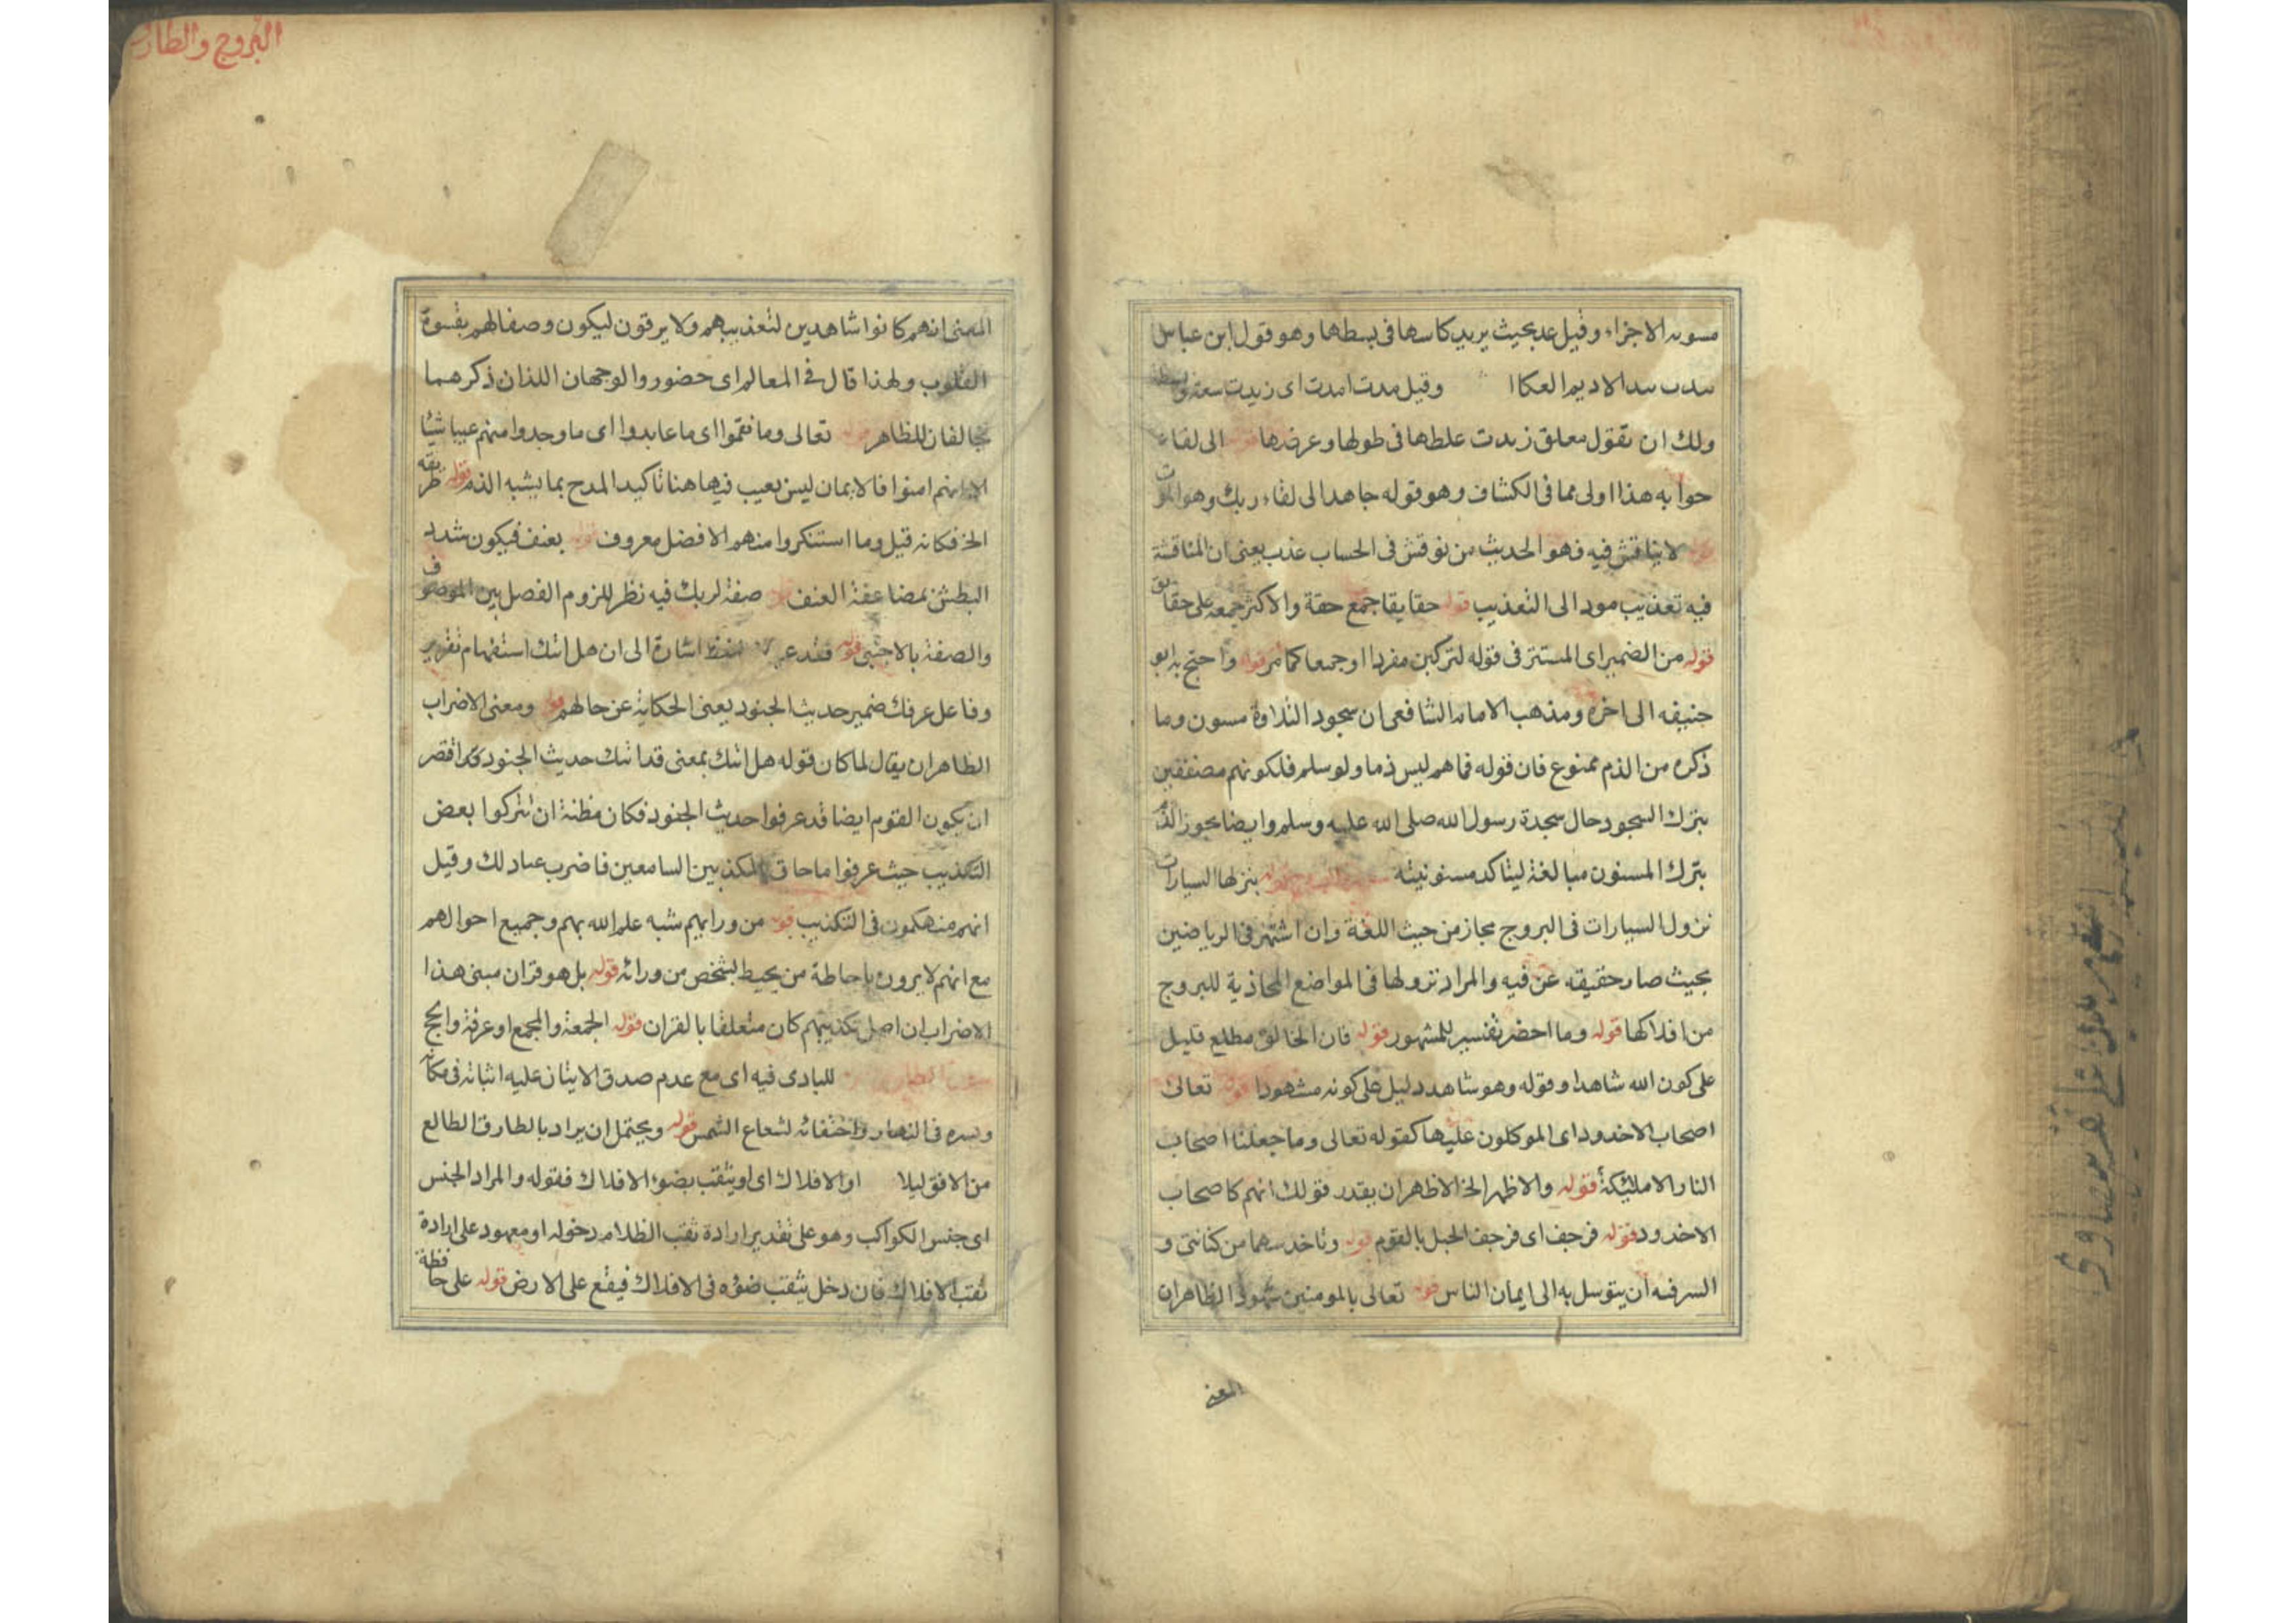 مسويه الاجزاء وقيل عد بحيث يريد كاسها فى بسطها وهو قول ابن عباس
مدت مد الاديم العكا وقيل مدت امدت اى زيدت سعة
ولك ان تقول معلق زيدت غلظها فى طولها وعرضها الى لقاء
جوابه هذا اولى مما فى الكشاف وهو قوله جاهدا الى لقاء ربك وهو الموت
لا يناقش فيه فهو الحديث من نوقش فى الحساب عذب يعنى ان المناقشة
فيه تعذيب مود الى التعذيب قوله حقا يقا جمع حقة والاكثر جمعه على حقائق
قوله من الضمير اى المستتر فى قوله لتركبن مفردا او جمعا كما مر قوله واحتج به ابو
حنيفه الى اخره ومذهب الامام الشافعى ان سجود التلاوة مسنون وما
ذكره من الذم ممنوع فان قوله فما هم ليس ذما ولو سلم فلكونهم متفقين
بترك السجود حال سجدة رسول الله صلى الله عليه وسلم وايضا يجوز الذم
بترك المسنون مبالغة ليتاكد مسنونيته ينزلها السيارات
نزول السيارات فى البروج مجاز من حيث اللغة وان اشتهر فى الرياضين
بحيث صار حقيقه عن فيه والمراد نزولها فى المواضع المحاذية للبروج
من افلاكها قوله وما احضر تفسير للمشهور قوله فان الخالق مطلع قليل
على كون الله شاهدا وقوله وهو شاهد دليل على كونه مشهودا قوله تعالى
اصحاب الاخدود اى الموكلون عليها كقوله تعالى وما جعلنا اصحاب
النار الا مليكة قوله والاظهر الخ الاظهر ان يقدر قولك انهم كاصحاب
الاخدود قوله فرجف اى فرجف الجبل بالقوم قوله وتاخذ سهما من كنانتى و
السر فيه ان يتوسل به الى ايمان الناس قوله تعالى بالمومنين شهود الظاهر ان
المعنى
البروج والطارق
المعنى انهم كانوا شاهدين لتعذيبهم ولا يرقون ليكون وصفا لهم بقسوة
القلوب ولهذا قال فى المعالم اى حضور والوجهان اللذان ذكرهما
مخالفان للظاهر قوله تعالى وما نقموا اى ما عابدوا اى ما وجدوا منهم عيبا شيئا
الا انهم امنوا فالايمان ليس بعيب فيها هنا تاكيد المدح بما يشبه الذم قوله طريقه
الخ فكانه قيل وما استنكروا منهم الا فضل معروف قوله بعنف فيكون شدد
البطش بمضاعفة العنف قوله صفة لربك فيه نظر للزوم الفصل بين الموصوف
والصفة بالاجنبى قوله فقد اشارة الى ان هل اتك استفهام تقرير
وفاعل عرفك ضمير حديث الجنود يعنى الحكاية عن حالهم قوله ومعنى الاضراب
الظاهر ان يقال لما كان قوله هل اتك بمعنى قد اتك حديث الجنود
ان يكون القوم ايضا قد عرفوا حديث الجنود فكان مظنة ان تتركوا بعض
التكذيب حيث عرفوا ما حاق المكذبين السامعين فاضرب عباد لك وقيل
انهم منهمكون فى التكذيب قوله من ورايهم شبه علم الله بهم وجميع احوالهم
مع انهم لا يرون باحاطة من يحيط بشخص من ورائه قوله بل هو قران مبنى هذا
الاضراب ان اصل تكذيبهم كان متعلقا بالقران قوله الجمعة والمجمع او عرفة والحج
للبادى فيه اى مع عدم صدق الاتيان عليه اثباته فى مكانه
وسيره فى النهار واختفائه لشعاع الشمس قوله ويحتمل ان يراد بالطارق الطالع
من الافق ليلا او الافلاك اى او يثقب بضوء الافلاك فقوله والمراد الجنس
اى جنس الكواكب وهو على تقدير ارادة ثقب الظلام دخوله او معهود على ارادة
ثقب الافلاك فان دخل يثقب ضوئه فى الافلاك فيقع على الارض قوله على حافظة